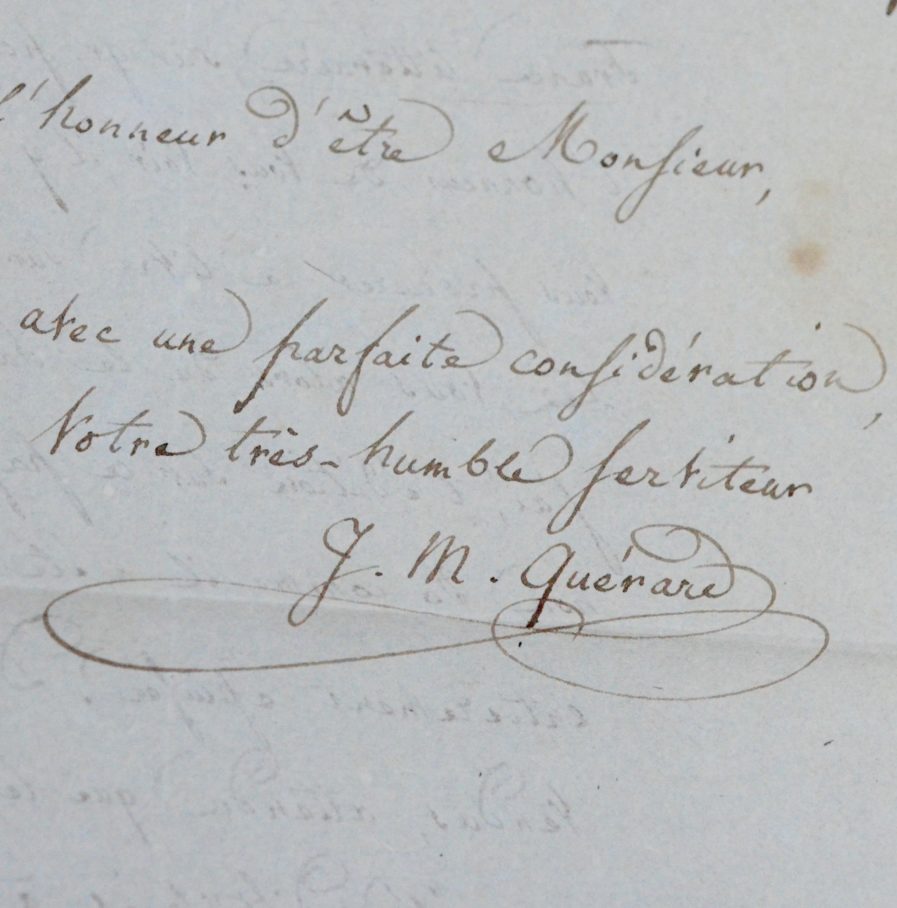 l'honneur d'être Monsieur,
avec une parfaite considération,
Votre très-humble serviteur
J. M. Quérard